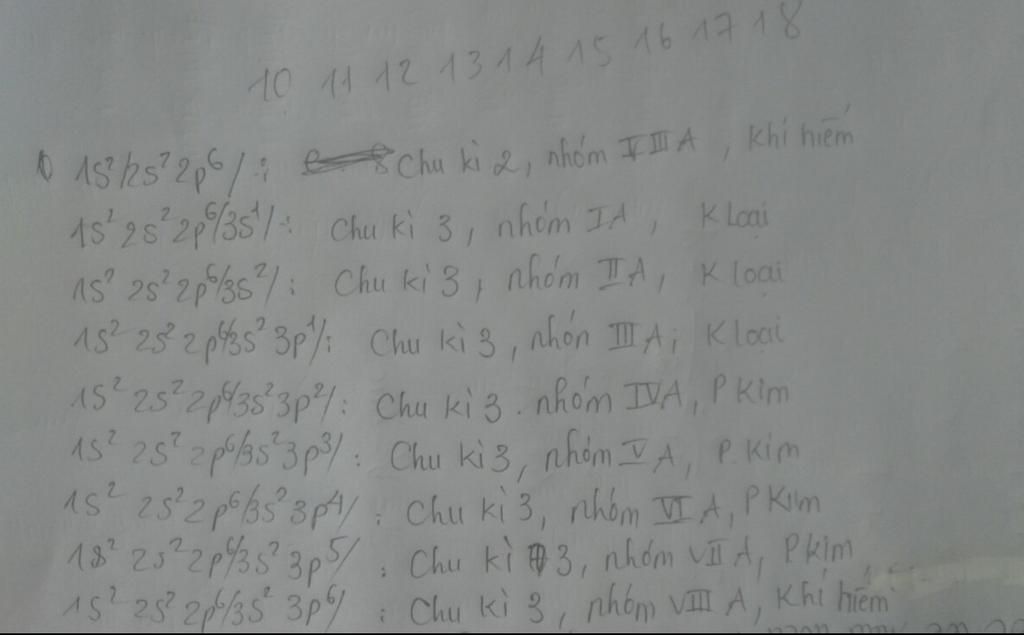 10 11 12 13 14 15 16 17 18
1s²/2s²2p⁶/: Chu kì 2, nhóm VIIIA, Khí hiếm
1s² 2s² 2p⁶/3s¹/: Chu kì 3, nhóm IA, K loại
1s² 2s² 2p⁶/3s²/: Chu kì 3, nhóm IIA, K loại
1s² 2s² 2p⁶/3s² 3p¹/: Chu kì 3, nhón IIIA; K loại
1s² 2s² 2p⁶/3s² 3p²/: Chu kì 3. nhóm IVA, P Kim
1s² 2s² 2p⁶/3s² 3p³/: Chu kì 3, nhóm VA, P. Kim
1s² 2s² 2p⁶/3s² 3p⁴/: Chu kì 3, nhóm VIA, P Kim
1s² 2s² 2p⁶/3s² 3p⁵/: Chu kì 3, nhóm VIIA, P kim
1s² 2s² 2p⁶/3s² 3p⁶/: Chu kì 3, nhóm VIIIA, Khí hiếm